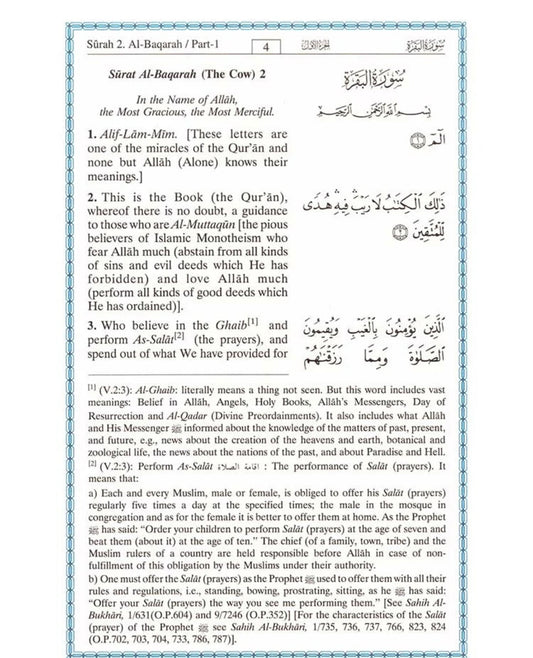 Sūrah 2. Al-Baqarah / Part-1
4
الجزء الأول
سورة البقرة
Sūrat Al-Baqarah (The Cow) 2
سُورَةُ البَقَرَةِ
In the Name of Allāh,
the Most Gracious, the Most Merciful.
بِسْمِ اللَّهِ الرَّحْمَٰنِ الرَّحِيمِ
1. Alif-Lām-Mīm. [These letters are
one of the miracles of the Qur'ān and
none but Allāh (Alone) knows their
meanings.]
الٓمٓ ١
2. This is the Book (the Qur'ān),
whereof there is no doubt, a guidance
to those who are Al-Muttaqūn [the pious
believers of Islamic Monotheism who
fear Allāh much (abstain from all kinds
of sins and evil deeds which He has
forbidden) and love Allāh much
(perform all kinds of good deeds which
He has ordained)].
ذَٰلِكَ الْكِتَٰبُ لَا رَيْبَ ۛ فِيهِ ۛ هُدًى
لِّلْمُتَّقِينَ ٢
3. Who believe in the Ghaib[1] and
perform As-Salāt[2] (the prayers), and
spend out of what We have provided for
الَّذِينَ يُؤْمِنُونَ بِالْغَيْبِ وَيُقِيمُونَ
الصَّلَوٰةَ وَمِمَّا رَزَقْنَٰهُمْ
[1] (V.2:3): Al-Ghaib: literally means a thing not seen. But this word includes vast
meanings: Belief in Allāh, Angels, Holy Books, Allāh's Messengers, Day of
Resurrection and Al-Qadar (Divine Preordainments). It also includes what Allāh
and His Messenger ﷺ informed about the knowledge of the matters of past, present,
and future, e.g., news about the creation of the heavens and earth, botanical and
zoological life, the news about the nations of the past, and about Paradise and Hell.
[2] (V.2:3): Perform As-Salāt اقامة الصلاة : The performance of Salāt (prayers). It
means that:
a) Each and every Muslim, male or female, is obliged to offer his Salāt (prayers)
regularly five times a day at the specified times; the male in the mosque in
congregation and as for the female it is better to offer them at home. As the Prophet
ﷺ has said: "Order your children to perform Salāt (prayers) at the age of seven and
beat them (about it) at the age of ten." The chief (of a family, town, tribe) and the
Muslim rulers of a country are held responsible before Allāh in case of non-
fulfillment of this obligation by the Muslims under their authority.
b) One must offer the Salāt (prayers) as the Prophet ﷺ used to offer them with all their
rules and regulations, i.e., standing, bowing, prostrating, sitting, as he ﷺ has said:
"Offer your Salāt (prayers) the way you see me performing them." [See Sahih Al-
Bukhāri, 1/631(O.P.604) and 9/7246 (O.P.352)] [For the characteristics of the Salāt
(prayer) of the Prophet ﷺ see Sahih Al-Bukhāri, 1/735, 736, 737, 766, 823, 824
(O.P.702, 703, 704, 733, 786, 787)].